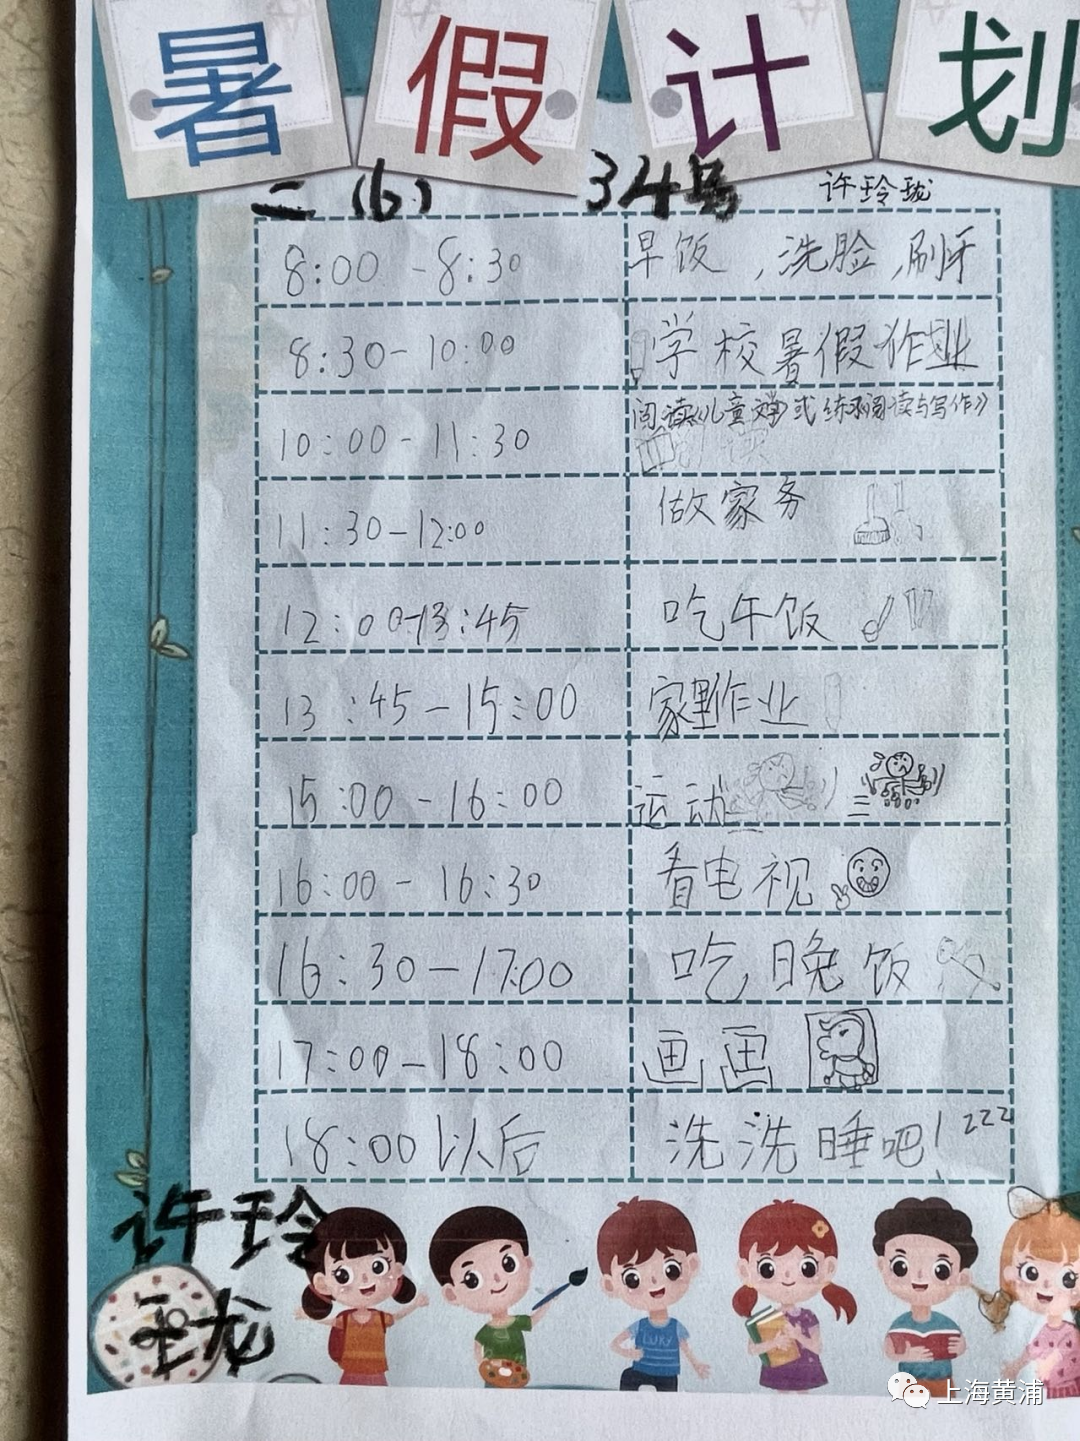 暑假计划
二(6) 34号 许玲珑
8:00-8:30 早饭,洗脸,刷牙
8:30-10:00 学校暑假作业
10:00-11:30 阅读《儿童文学》或练习《阅读与写作》
11:30-12:00 做家务
12:00-13:45 吃午饭
13:45-15:00 家里作业
15:00-16:00 运动
16:00-16:30 看电视
16:30-17:00 吃晚饭
17:00-18:00 画画
18:00以后 洗洗睡吧! zzz
许玲
珑
LUKY
上海黄浦